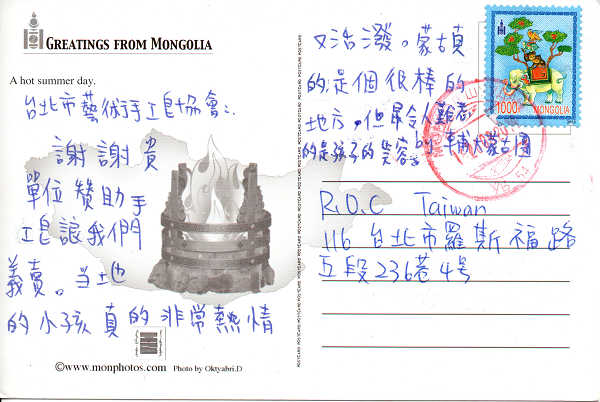 GREETINGS FROM MONGOLIA
A hot summer day.
台北市藝術手工皂協會:
謝謝貴
單位贊助手
工皂讓我們
義賣。當地
的小孩真的非常熱情
©www.monphotos.com Photo by Oktyabri.D
又活潑。蒙古真
的是個很棒的
地方,但最令人難忘
的是孩子的笑容。by 輔大蒙古團
1000 MONGOLIA
R.O.C Taiwan
116 台北市羅斯福路
五段236巷4号